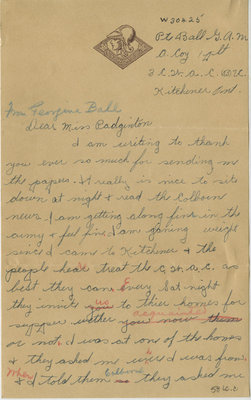 W 30225
Pte Ball G. A. M
A Coy 1 plt
3 C.W.A.C. (B)T.C.
Kitchener Ont.
From Georgene Ball
Dear Miss Padginton
I am writing to thank
you ever so much for sending me
the papers. It really is nice to sit
down at night & read the Colborn
news. I am getting along fine in the
army & feel fine I am gaining weight
since I came to Kitchener & the
people hear treat the C.W.A.C. as
best they can Every Sat night
they invite us to thier homes for
supper wither you now them
acquainted
or not. I was at one of the homes
& they asked me were I was from
When Colborne
& I told them they asked me